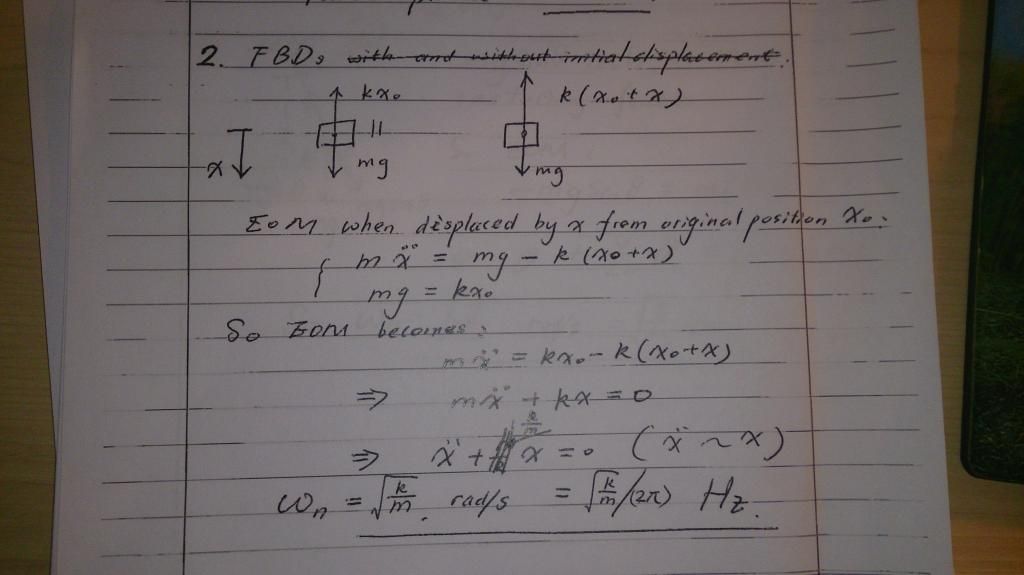 2. FBDs with and without initial displacement.
kx₀ k(x₀+x)
x mg mg
EOM when displaced by x from original position x₀.
mẍ = mg - k(x₀+x)
mg = kx₀
So EOM becomes:
mẍ = kx₀ - k(x₀+x)
⇒ mẍ + kx = 0
⇒ ẍ + k/m x = 0 (ẍ ~ x)
ωₙ = √(k/m) rad/s = √(k/m)/(2π) Hz.